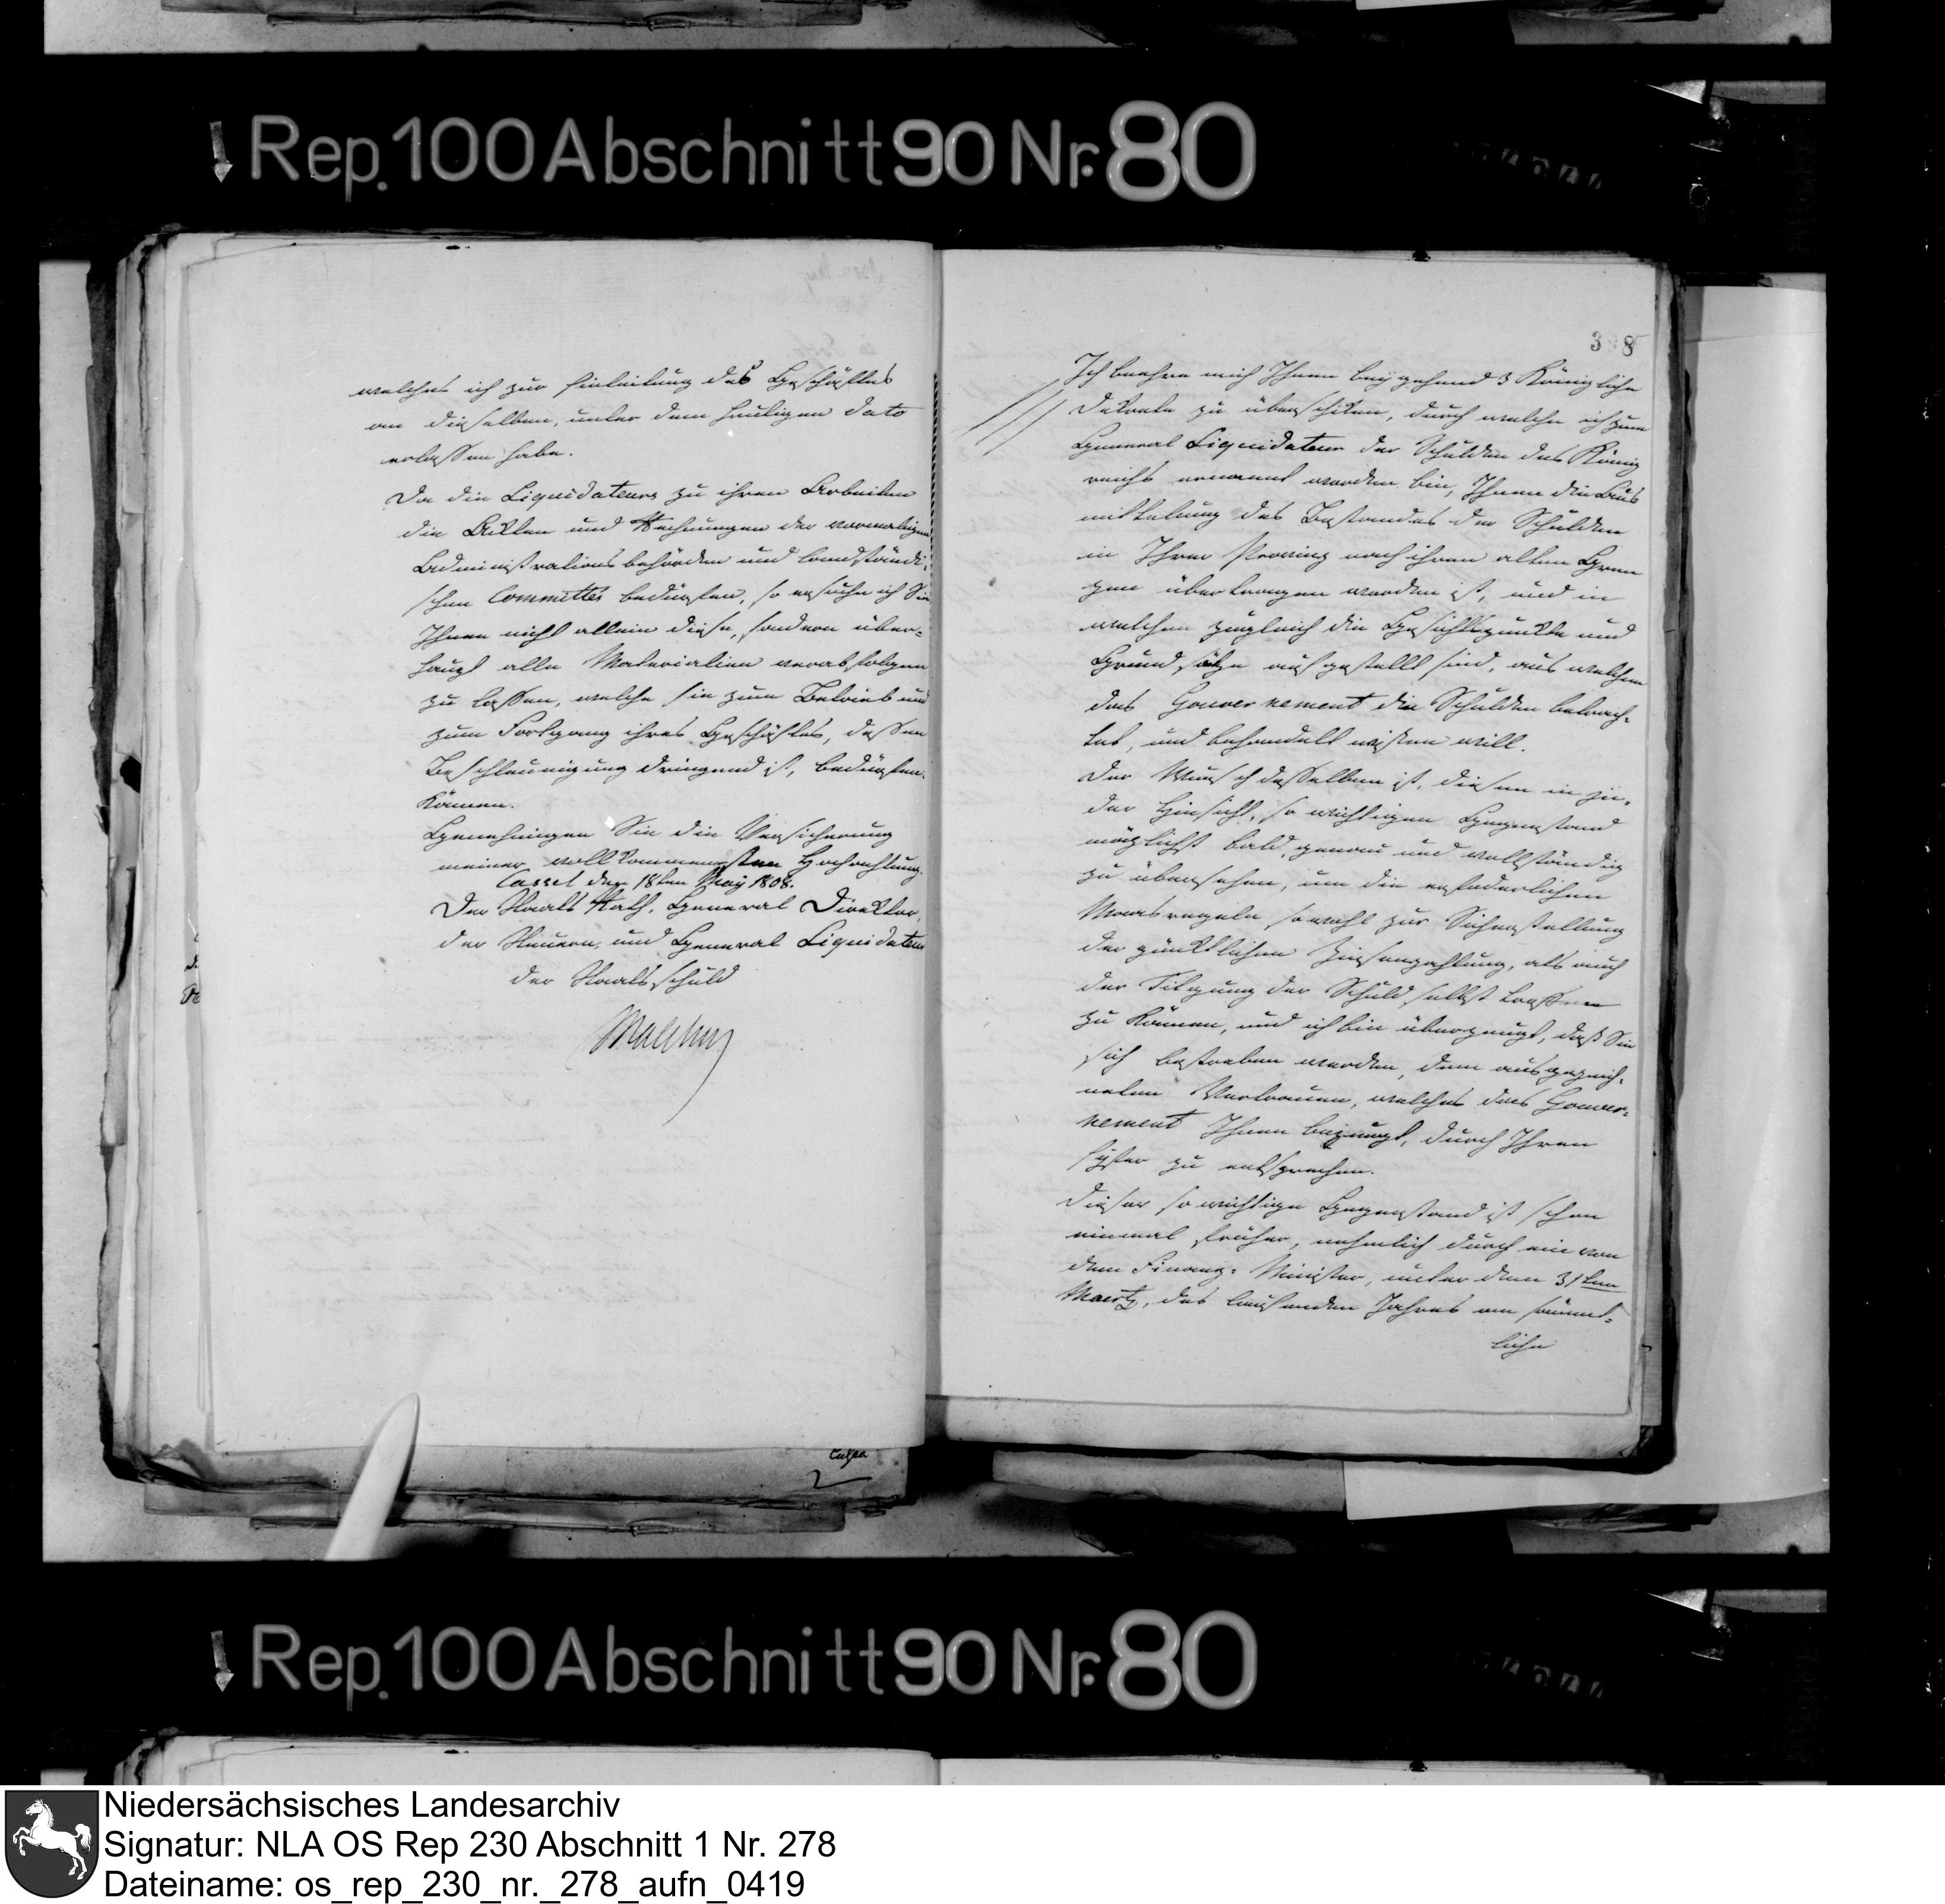 Rep. 100 Abschnitt 90 Nr. 80
welches ich zur Einleitung des Geschäftes
an dieselben, unter dem heutigen dato
erlassen habe.
Da die Liquidateurs zu ihren Arbeiten
die Akten und Rechnungen der vormaligen
Administrationsbehörden und landständi-
schen Committés bedürfen, so ersuche ich Sie
Ihnen nicht allein diese, sondern über-
haupt alle Materialien verabfolgen
zu lassen, welche sie zum Betrieb und
zum Fortgang ihres Geschäftes, dessen
Beschleunigung dringend ist, bedürfen
können.
Genehmigen Sie die Versicherung
meiner vollkommensten Hochachtung.
Cassel den 18ten May 1808.
Der Staats Rath, General Direktor
der Steuern, und General Liquidateur
der Staatsschuld
Malchus
308
Ich beehre mich Ihnen beygehend 3 Königliche
Dekrete zu überschiken, durch welche ich zum
General Liquidateur der Schulden des König
reichs ernannt worden bin, Ihnen die Aus
mittelung des Bestandes der Schulden
in Ihrer Provinz nach ihren alten Gren
zen übertragen worden ist, und in
welchen zugleich die Gesichtspunkte und
Grundsätze aufgestellt sind, aus welchen
das Gouvernement die Schulden betrach-
tet, und behandelt wissen will.
Der Wunsch desselben ist, diesen in je-
der Hinsicht, so wichtigen Gegenstand
möglichst bald, genau und vollständig
zu übersehen, um die erforderlichen
Maasregeln sowohl zur Sicherstellung
der pünktlichen Zinsenzahlung, als auch
der Tilgung der Schuld selbst treffen
zu können, und ich bin überzeugt, daß Sie
sich bestreben werden, dem ausgezeich-
neten Vertrauen, welches das Gouver-
nement Ihnen bezeugt, durch Ihren
Eifer zu entsprechen.
Dieser so wichtige Gegenstand ist schon
einmal früher, nehmlich durch ein von
dem Finanz-Minister, unter dem 31ten
Maertz, des laufenden Jahres an sämmt-
liche
Rep. 100 Abschnitt 90 Nr. 80
Niedersächsisches Landesarchiv
Signatur: NLA OS Rep 230 Abschnitt 1 Nr. 278
Dateiname: os_rep_230_nr._278_aufn_0419